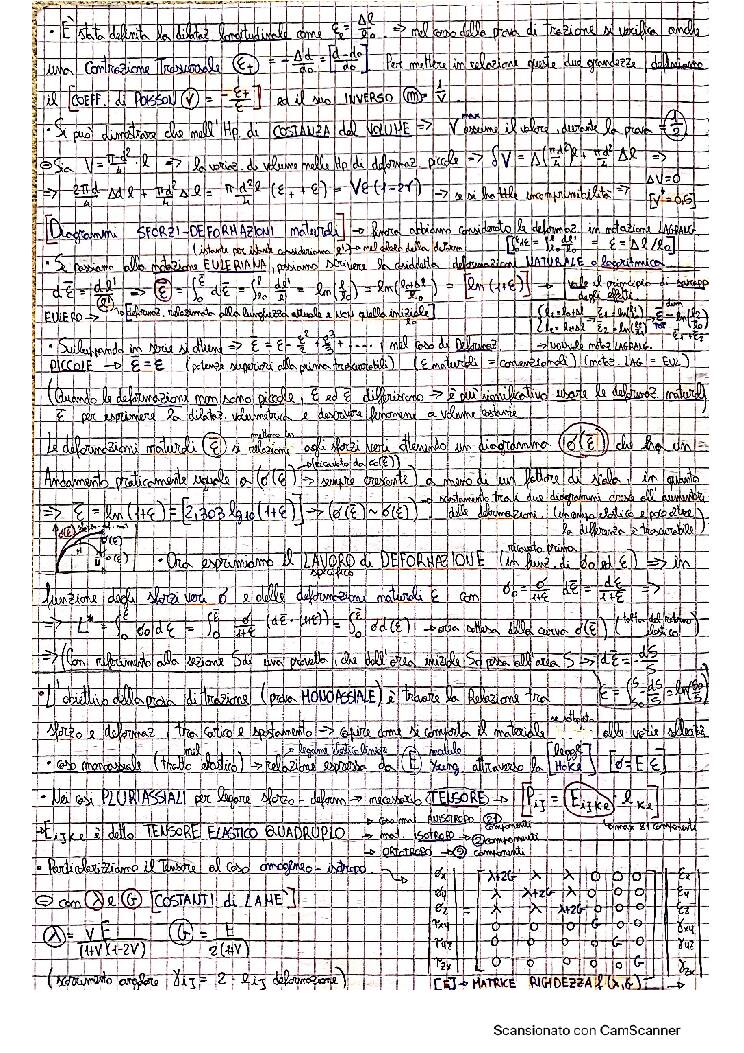 • È stata definita la dilataz. longitudinale come εₑ = Δl/l₀ ⇒ nel corso della prova di trazione si verifica anche
una Contrazione Trasversale (ε₊) = -Δd/d₀ = [d-d₀/d₀] Per mettere in relazione queste due grandezze, definiamo
il [COEFF. di POISSON (ν) = -ε₊/ε] ed il suo INVERSO (m) = 1/ν
• Si può dimostrare che nell'Hp. di COSTANZA del VOLUME ⇒ ν max assume il valore, durante la prova = (1/2)
⊖ Sia V = πd²/4 · l ⇒ la variaz. di volume nelle Hp. di deformaz. piccole ⇒ δV = Δ(πd²/4)l + πd²/4 Δl ⇒
⇒ 2πd/4 Δd l + πd²/4 Δl = πd²l/4 (ε₊ + ε) = Vε(1-2ν) ⇒ se si ha incomprimibilità ⇒ ΔV=0 [ν=0,5]
[Diagrammi SFORZI-DEFORMAZIONI materiali] → finora abbiamo considerato le deformaz. in notazione LAGRANG.
• Se passiamo alla notazione EULERIANA, possiamo scrivere la cosiddetta deformazione NATURALE o logaritmica
dε̄ = dl'/l' ⇒ ε̄ = ∫₀^ε̄ dε̄ = ∫ dl'/l' = ln(l/l₀) = ln(l₀+Δl/l₀) = [ln(1+ε)] → vale il principio di sovrapp. degli effetti
EULERO → [deformaz. relazionata alla lunghezza attuale e non quella iniziale]
• Sviluppando in serie si ottiene ⇒ ε̄ = ε - ε²/2 + ε³/3 + .... (nel caso di Deformaz.
PICCOLE → ε̄ = ε (potenze superiori alla prima trascurabili) (ε naturali = convenzionali) (notaz. LAG = EUL)
(Quando le deformazioni non sono piccole, ε̄ ed ε differiscono → è più significativo usare le deformaz. naturali
ε̄ per esprimere la dilataz. volumetrica e descrivere fenomeni a volume costante
Le deformazioni naturali (ε̄) si mettono in relazione agli sforzi veri ottenendo un diagramma (σ(ε̄)) che ha un
Andamento praticamente uguale a (σ(ε) → sempre crescente) a meno di un fattore di scala, in quanto
⇒ ε̄ = ln(1+ε) = [2,303 lg₁₀(1+ε)] → (σ(ε̄) ~ σ(ε)) → scostamento tra i due diagrammi cresce all'aumentare
delle deformazioni (in campo elastico e
la differenza è trascurabile)
• Ora esprimiamo il LAVORO di DEFORMAZIONE specifico (ricavato prima in funz. di σ₀ ed ε) ⇒ in
funzione degli sforzi veri σ e delle deformazioni naturali ε̄ con σ₀ = σ/1+ε dε̄ = dε/1+ε ⇒
⇒ L* = ∫₀^ε σ₀dε = ∫₀^ε̄ σ/1+ε (dε̄·(1+ε)) = ∫₀^ε̄ σd(ε̄) → area sottesa dalla curva σ(ε̄)
⇒ (Con riferimento alla sezione S di una provetta, che dall'area iniziale S₀ passa all'area S ⇒ dε̄ = -dS/S
• L'obiettivo della prova di trazione (prova MONOASSIALE) è trovare la Relazione tra
sforzo e deformaz., tra carico e spostamento → capire come si comporta il materiale se sottoposto alle varie sollecitaz.
• nel caso monoassiale (tratto elastico) = legame elastico lineare → relazione espressa da (E) modulo Young attraverso la [legge Hooke] [σ=E ε]
• Nei casi PLURIASSIALI per legare sforzo - deform → necessario TENSORE → [Pᵢⱼ = (Eᵢⱼₖₑ) · lₖₑ]
→ Eᵢⱼₖₑ è detto TENSORE ELASTICO QUADRUPLO → caso mat. ANISOTROPO (21) componenti
→ mat. ISOTROPO → (2) componenti
→ max 81 componenti
→ ORTOTROPO → (9) componenti
• Particolarizziamo il Tensore al caso omogeneo - isotropo
⊖ con (λ) e (G) [COSTANTI di LAMÈ]
(λ) = νE/(1+ν)(1-2ν) (G) = E/2(1+ν)
(scorrimento angolare γᵢⱼ = 2 · eᵢⱼ deformazione)
σₓ | λ+2G λ λ 0 0 0 | εₓ
σy | λ λ+2G λ 0 0 0 | εy
σz = | λ λ λ+2G 0 0 0 | εz
τxy | 0 0 0 G 0 0 | γxy
τyz | 0 0 0 0 G 0 | γyz
τzx | 0 0 0 0 0 G | γzx
[E] → MATRICE RIGIDEZZA (λ,G)
Scansionato con CamScanner